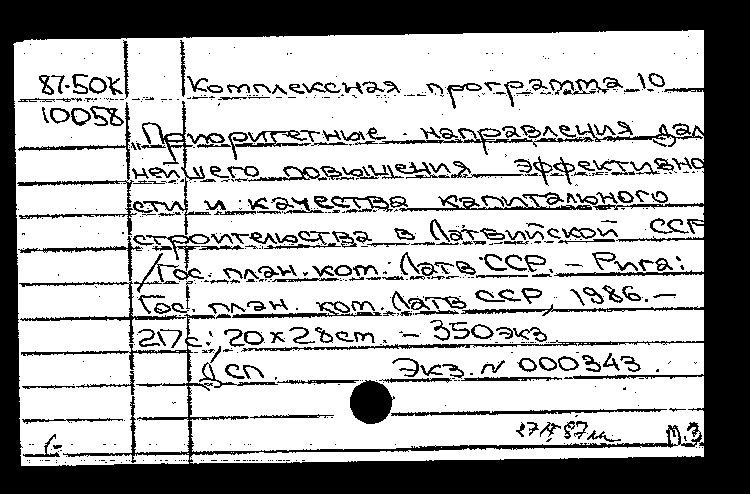 87-50К Комплексная программа 10
10058
„Приоритетные направления дал
нейшего повышения эффективно
сти и качества капитального
строительства в Латвийской ССР
/Гос. план. ком. Латв ССР. – Рига:
Гос. план. ком. Латв ССР, 1986. –
217с.; 20 х 28см. – 350экз
Дсп. Экз. N 000343.